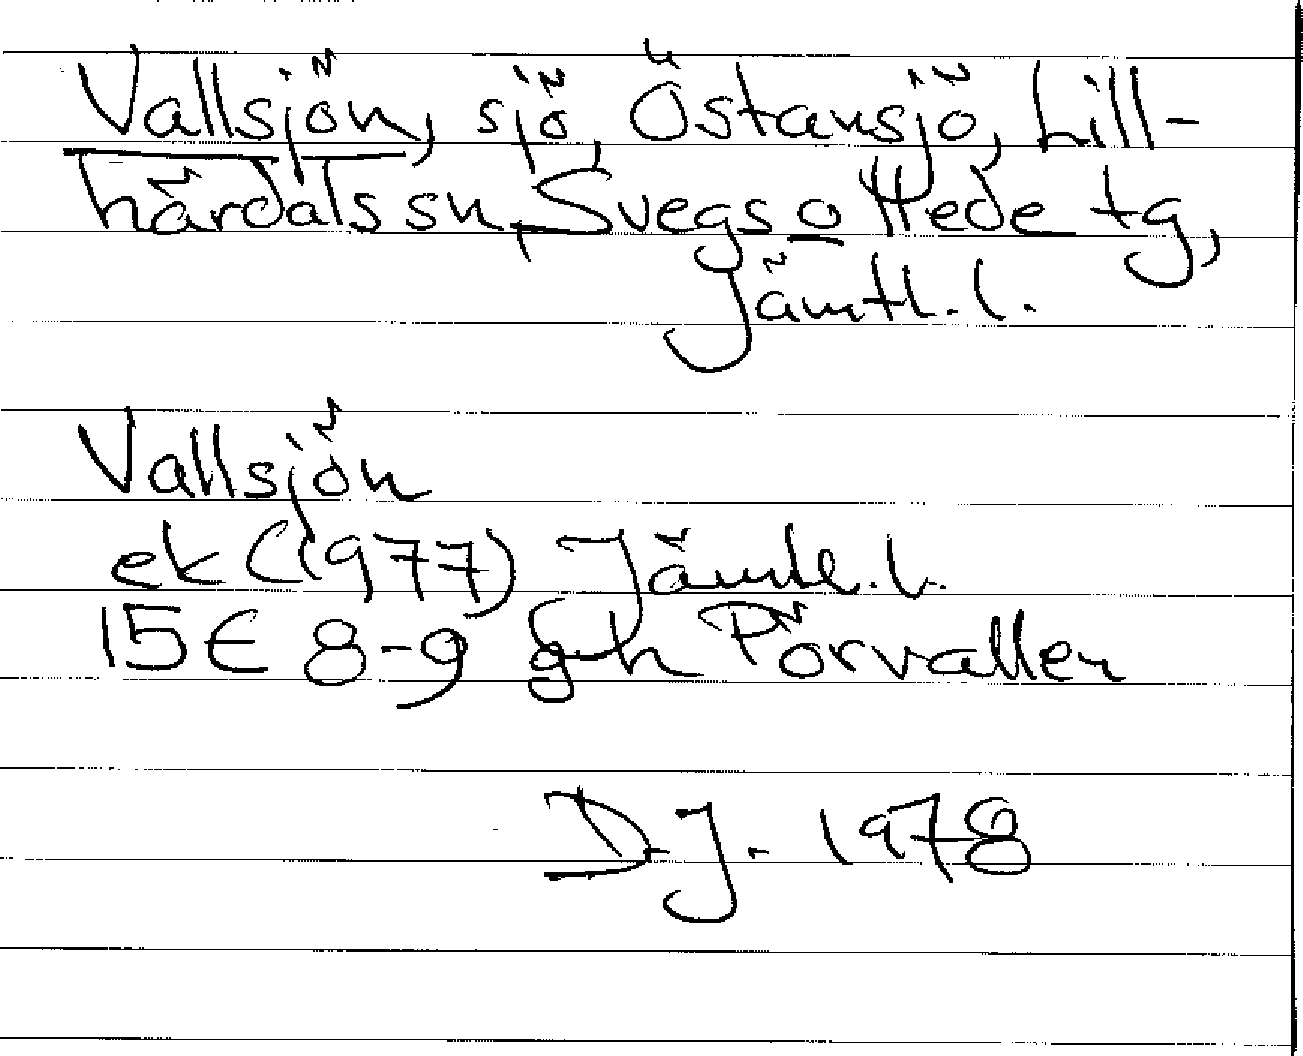 Vallsjön, sjö, Östansjö, Lill-
härdals sn, Svegs o Hede tg,
Jämtl. l.
Vallsjön
ek (1977) Jämtl. l.
15E 8-9 g-h Pörvallen
D.J. 1978